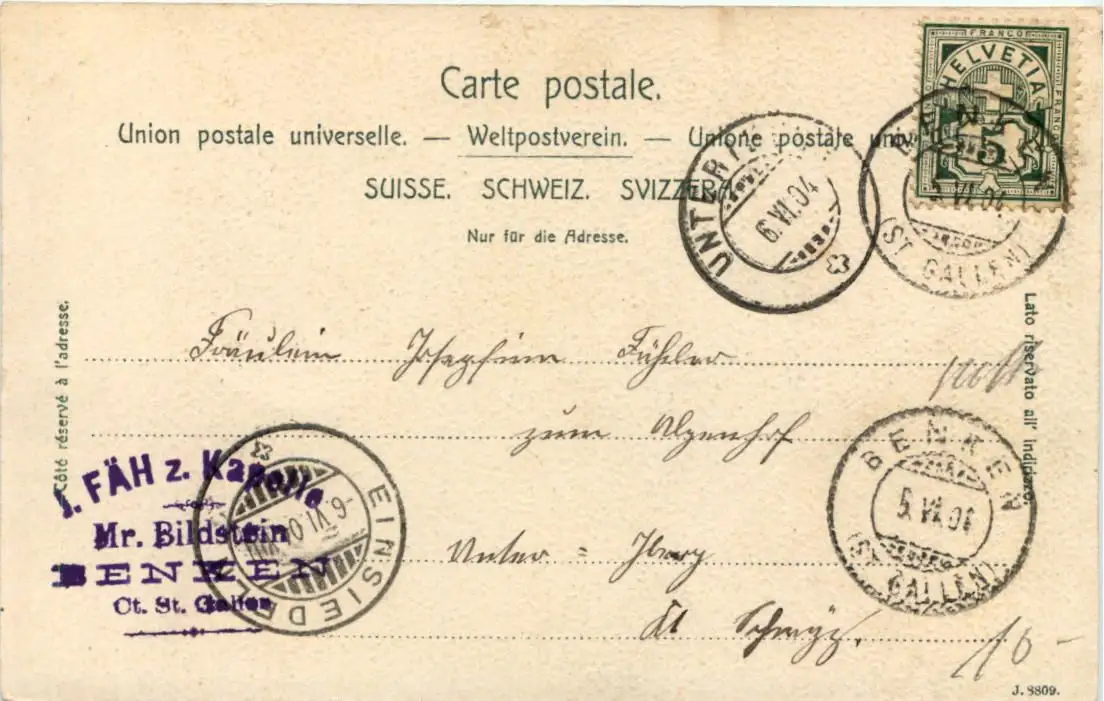 FRANCO
HELVETIA
FRANCO
5
Carte postale.
Union postale universelle. — Weltpostverein. — Unione postale univ
SUISSE. SCHWEIZ. SVIZZERA
Nur für die Adresse.
UNTERI
6.VI.04
BENKEN
VI.04
(ST GALLEN)
Côté réservé à l'adresse.
Lato riservato all' indirizzo.
Fräulein Josephine Fühler
zum Alpenhof
Unter = Iberg
Kt Schwyz.
BENKEN
5.VI.04
(ST GALLEN)
EINSIEDELN
-6.VI.04
J. FÄH z. Kapelle
Mr. Bildstein
BENKEN
Ct. St. Gallen
10 -
J. 8809.